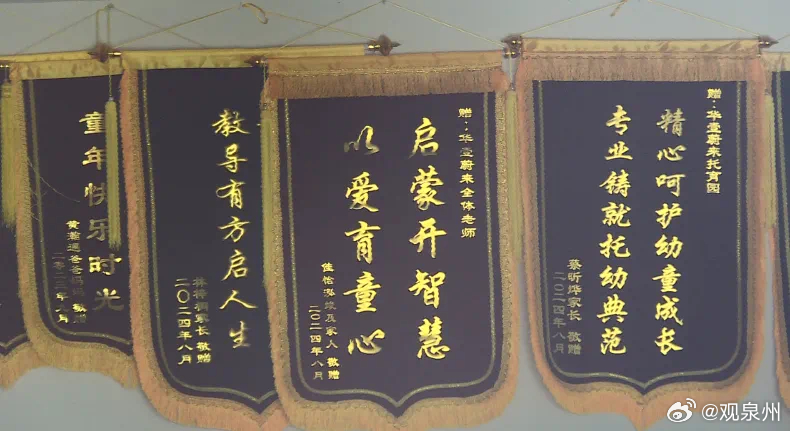 童年快乐时光
二〇二三年八月
教导有方启人生
家长 敬赠
二〇二四年八月
赠·华壹蔚来全体老师
启蒙开智慧
以爱育童心
及家人 敬赠
二〇二四年八月
赠·华壹蔚来托育园
精心呵护幼童成长
专业铸就托幼典范
蔡昕烨家长 敬赠
二〇二四年八月
@观泉州